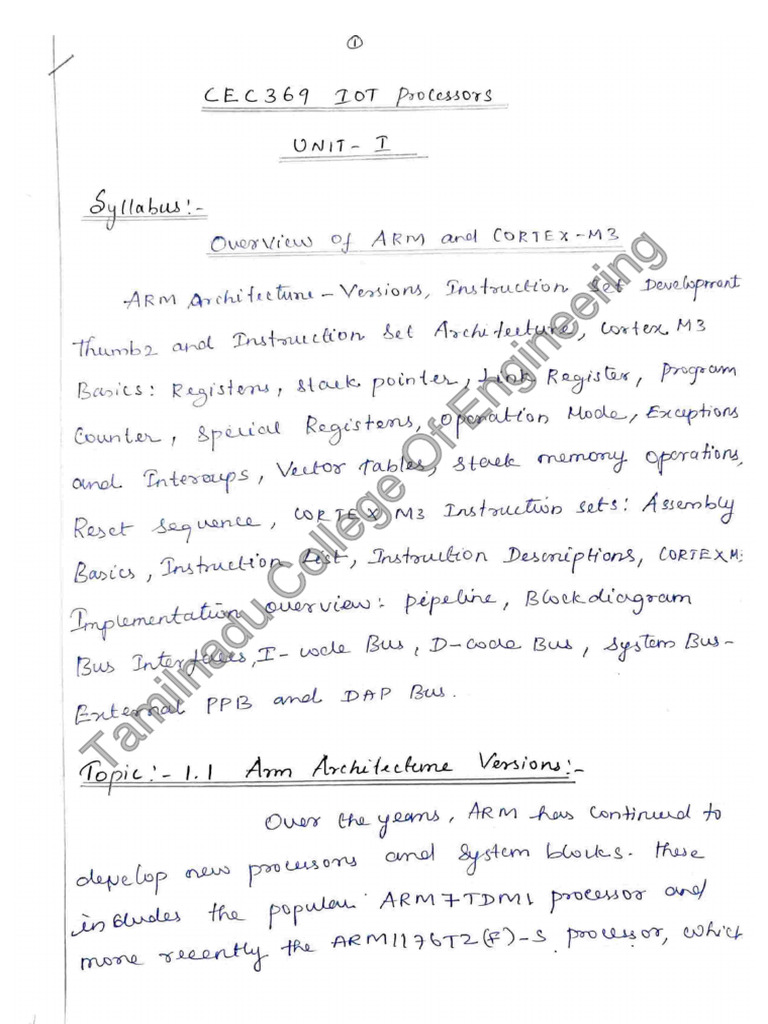 1
CEC369 IOT Processors
UNIT - I
Syllabus:-
Overview of ARM and CORTEX-M3
ARM Architecture - Versions, Instruction Set Development
Thumb2 and Instruction Set Architecture, Cortex M3
Basics: Registers, Stack pointer, Link Register, Program
Counter, Special Registers, Operation Mode, Exceptions
and Interrups, Vector Tables, Stack memory operations,
Reset Sequence, CORTEX M3 Instruction sets: Assembly
Basics, Instruction List, Instruction Descriptions, CORTEX M3
Implementation overview: pipeline, Block diagram
Bus Interfaces, I-code Bus, D-code Bus, System Bus-
External PPB and DAP Bus.
Topic:- 1.1 Arm Architecture Versions:-
Over the years, ARM has continued to
develop new processors and system blocks. These
includes the popular ARM7TDMI processor and
more recently the ARM1176T2(F)-S processor, which
Tamilnadu College Of Engineering